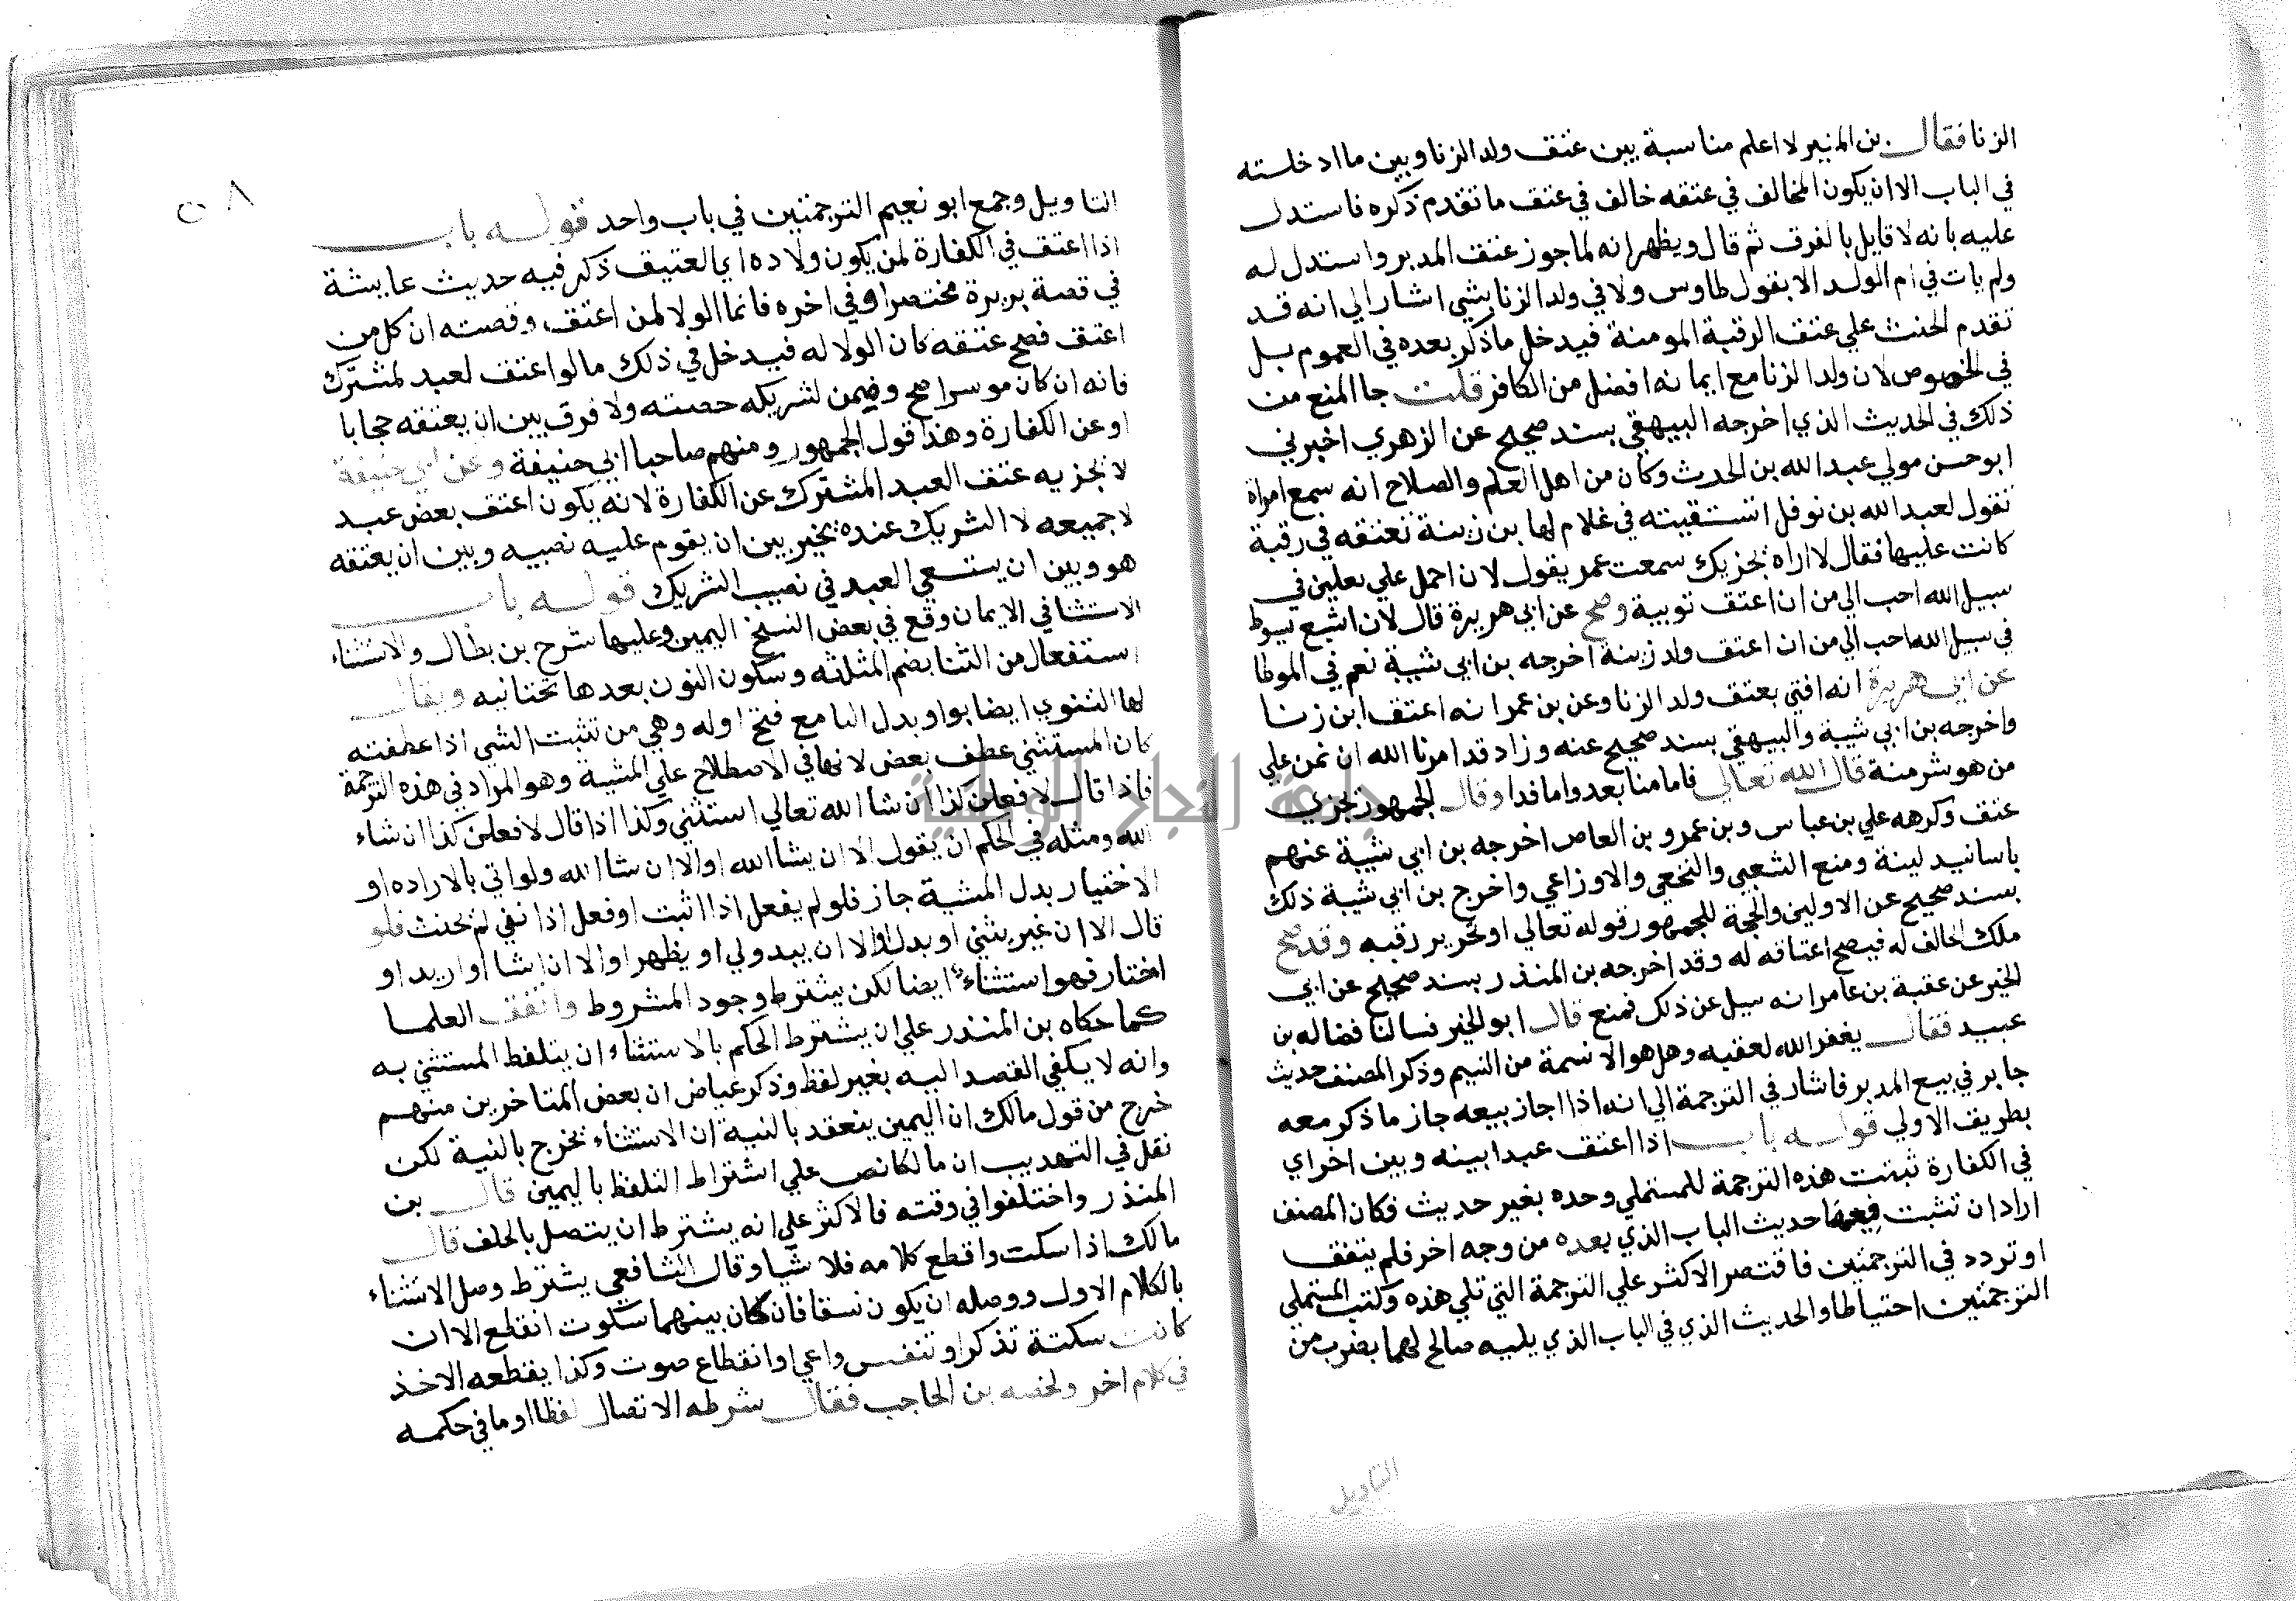 الزنا فقال بن المنير لا اعلم مناسبة بين عتق ولد الزنا وبين ما ادخلته
في الباب الا ان يكون المخالف في عتقه خالف في عتق ما تقدم ذكره فاستدل
عليه بانه لا قايل بالفرق ثم قال ويظهر انه لما جوز عتق المدبر واستدل له
ولم يات في ام الولد الا بقول طاوس ولا في ولد الزنا بشي اشار الي انه قد
تقدم الحنث علي عتق الرقبة المومنة فيدخل ما ذكر بعده في العموم بل
في الخصوص لان ولد الزنا مع ايمانه افضل من الكافر قلت جا المنع من
ذلك في الحديث الذي اخرجه البيهقي بسند صحيح عن الزهري اخبرني
ابو حسن مولي عبد الله بن الحدث وكان من اهل العلم والصلاح انه سمع امراة
تقول لعبد الله بن نوفل استقيته في غلام لها بن زنية تعتقه في رقبة
كانت عليها فقال لا اراه يجزيك سمعت عمر يقول لان احمل علي نعلين في
سبيل الله احب الي من ان اعتق توبية وصح عن ابي هريرة قال لان اشبع بسوط
في سبيل الله احب الي من ان اعتق ولد زنية اخرجه بن ابي شيبة نعم في الموطا
عن ابي هريرة انه افتي بعتق ولد الزنا وعن بن عمر انه اعتق ابن زنا
واخرجه بن ابي شيبة والبيهقي بسند صحيح عنه وزاد قد امرنا الله ان نمن علي
من هو شر منه قال الله تعالي فاما منا بعد واما فدا وقال الجمهور يجزي
عتقه وكرهه علي بن عباس وبن عمرو بن العاص اخرجه بن ابي شيبة عنهم
باسانيد لينة ومنع الشعبي والنخعي والاوزاعي واخرج بن ابي شيبة ذلك
بسند صحيح عن الاولين والحجة للجمهور قوله تعالي او تحرير رقبه وقد صح
ملك الحالف له فيصح اعتاقه له وقد اخرجه بن المنذر بسند صحيح عن ابي
الخير عن عقبة بن عامر انه سيل عن ذلك فمنع قال ابو الخير فسالنا فضاله بن
عبيد فقال يغفر الله لعقبه وهل هو الا نسمة من النسم وذكر المصنف حديث
جابر في بيع المدبر فاشار في الترجمة الي انه اذا جاز بيعه جاز ما ذكر معه
بطريق الاولي قوله باب اذا اعتق عبدا بينه وبين اخر اي
في الكفارة ثبتت هذه الترجمة للمستملي وحده بغير حديث فكان المصنف
اراد ان تثبت فيها حديث الباب الذي بعده من وجه اخر فلم يتفق
او تردد في الترجمتين فاقتصر الاكثر علي الترجمة التي تلي هذه وكتب المستملي
الترجمتين احتياطا والحديث الذي في الباب الذي يليه صالح لهما بضرب من
التاويل
٥٨
التاويل وجمع ابو نعيم الترجمتين في باب واحد قوله باب
اذا اعتق في الكفارة لمن يكون ولاده اي العتيق ذكر فيه حديث عايشة
في قصة بريرة مختصرا وفي اخره فانما الولا لمن اعتق وقصته ان كل من
اعتق فصح عتقه كان الولا له فيدخل في ذلك ما لو اعتق لعبد لمشترك
فانه ان كان موسرا صح وضمن لشريكه حصته ولا فرق بين ان يعتقه مجابا
او عن الكفارة وهذا قول الجمهور ومنهم صاحبا ابي حنيفة وعن ابي حنيفة
لا يجزيه عتق العبد المشترك عن الكفارة لانه يكون اعتق بعض عبد
لا جميعه لا الشريك عنده يخير بين ان يقوم عليه نصيبه وبين ان يعتقه
هو وبين ان يستسعي العبد في نصيب الشريك قوله باب
الاستثنا في الايمان وقع في بعض النسخ اليمين وعليها شرح بن بطال والاستثناء
استفعال من الثنا بضم المثلثه وسكون النون بعدها تحتانيه ويقال
لها الثنوي ايضا بواو بدل اليا مع فتح اوله وهي من ثنيت الشي اذا عطفته
كان المستثني عطف بعض لانها في الاصطلاح علي المشية وهو المراد في هذه الترجمة
فاذا قال لافعلن كذا ان شا الله تعالي استثني وكذا اذا قال لا فعلن كذا ان شاء
الله ومثله في الحكم ان يقول الا ان يشا الله او الا ان شا الله ولو اتي بالاراده او
الاختيار بدل المشية جاز فلو لم يفعل اذا اثبت او فعل اذا نفي لم يحنث فلو
قال الا ان غير يثني او بدل او الا ان يبدو لي او يظهر او الا ان اشا او اريد او
اختار فهو استثناء ايضا لكن يشترط وجود المشروط واتفق العلما
كما حكاه بن المنذر علي ان يشترط الحكم بالاستثناء ان يتلفظ المستثني به
وانه لا يكفي القصد اليه بغير لفظ وذكر عياض ان بعض المتاخرين منهم
خرج من قول مالك ان اليمين ينعقد بالنية ان الاستثناء يخرج بالنية لكن
نقل في التهذيب ان مالكا نص علي اشتراط التلفظ باليمين قال بن
المنذر واختلفوا في وقته فالاكثر علي انه يشترط ان يتصل بالحلف قال
مالك اذا سكت واقطع كلامه فلا شيا وقال الشافعي يشترط وصل الاستثناء
بالكلام الاول ووصله ان يكون نسقا فان كان بينهما سكوت انقطع الا ان
كانت سكتة تذكر او تنفس واعي او انقطاع صوت وكذا يقطعه الاخذ
في كلام اخر ولخصه بن الحاجب فقال شرطه الاتصال لفظا او ما في حكمه
جامعة النجاح الوطنية